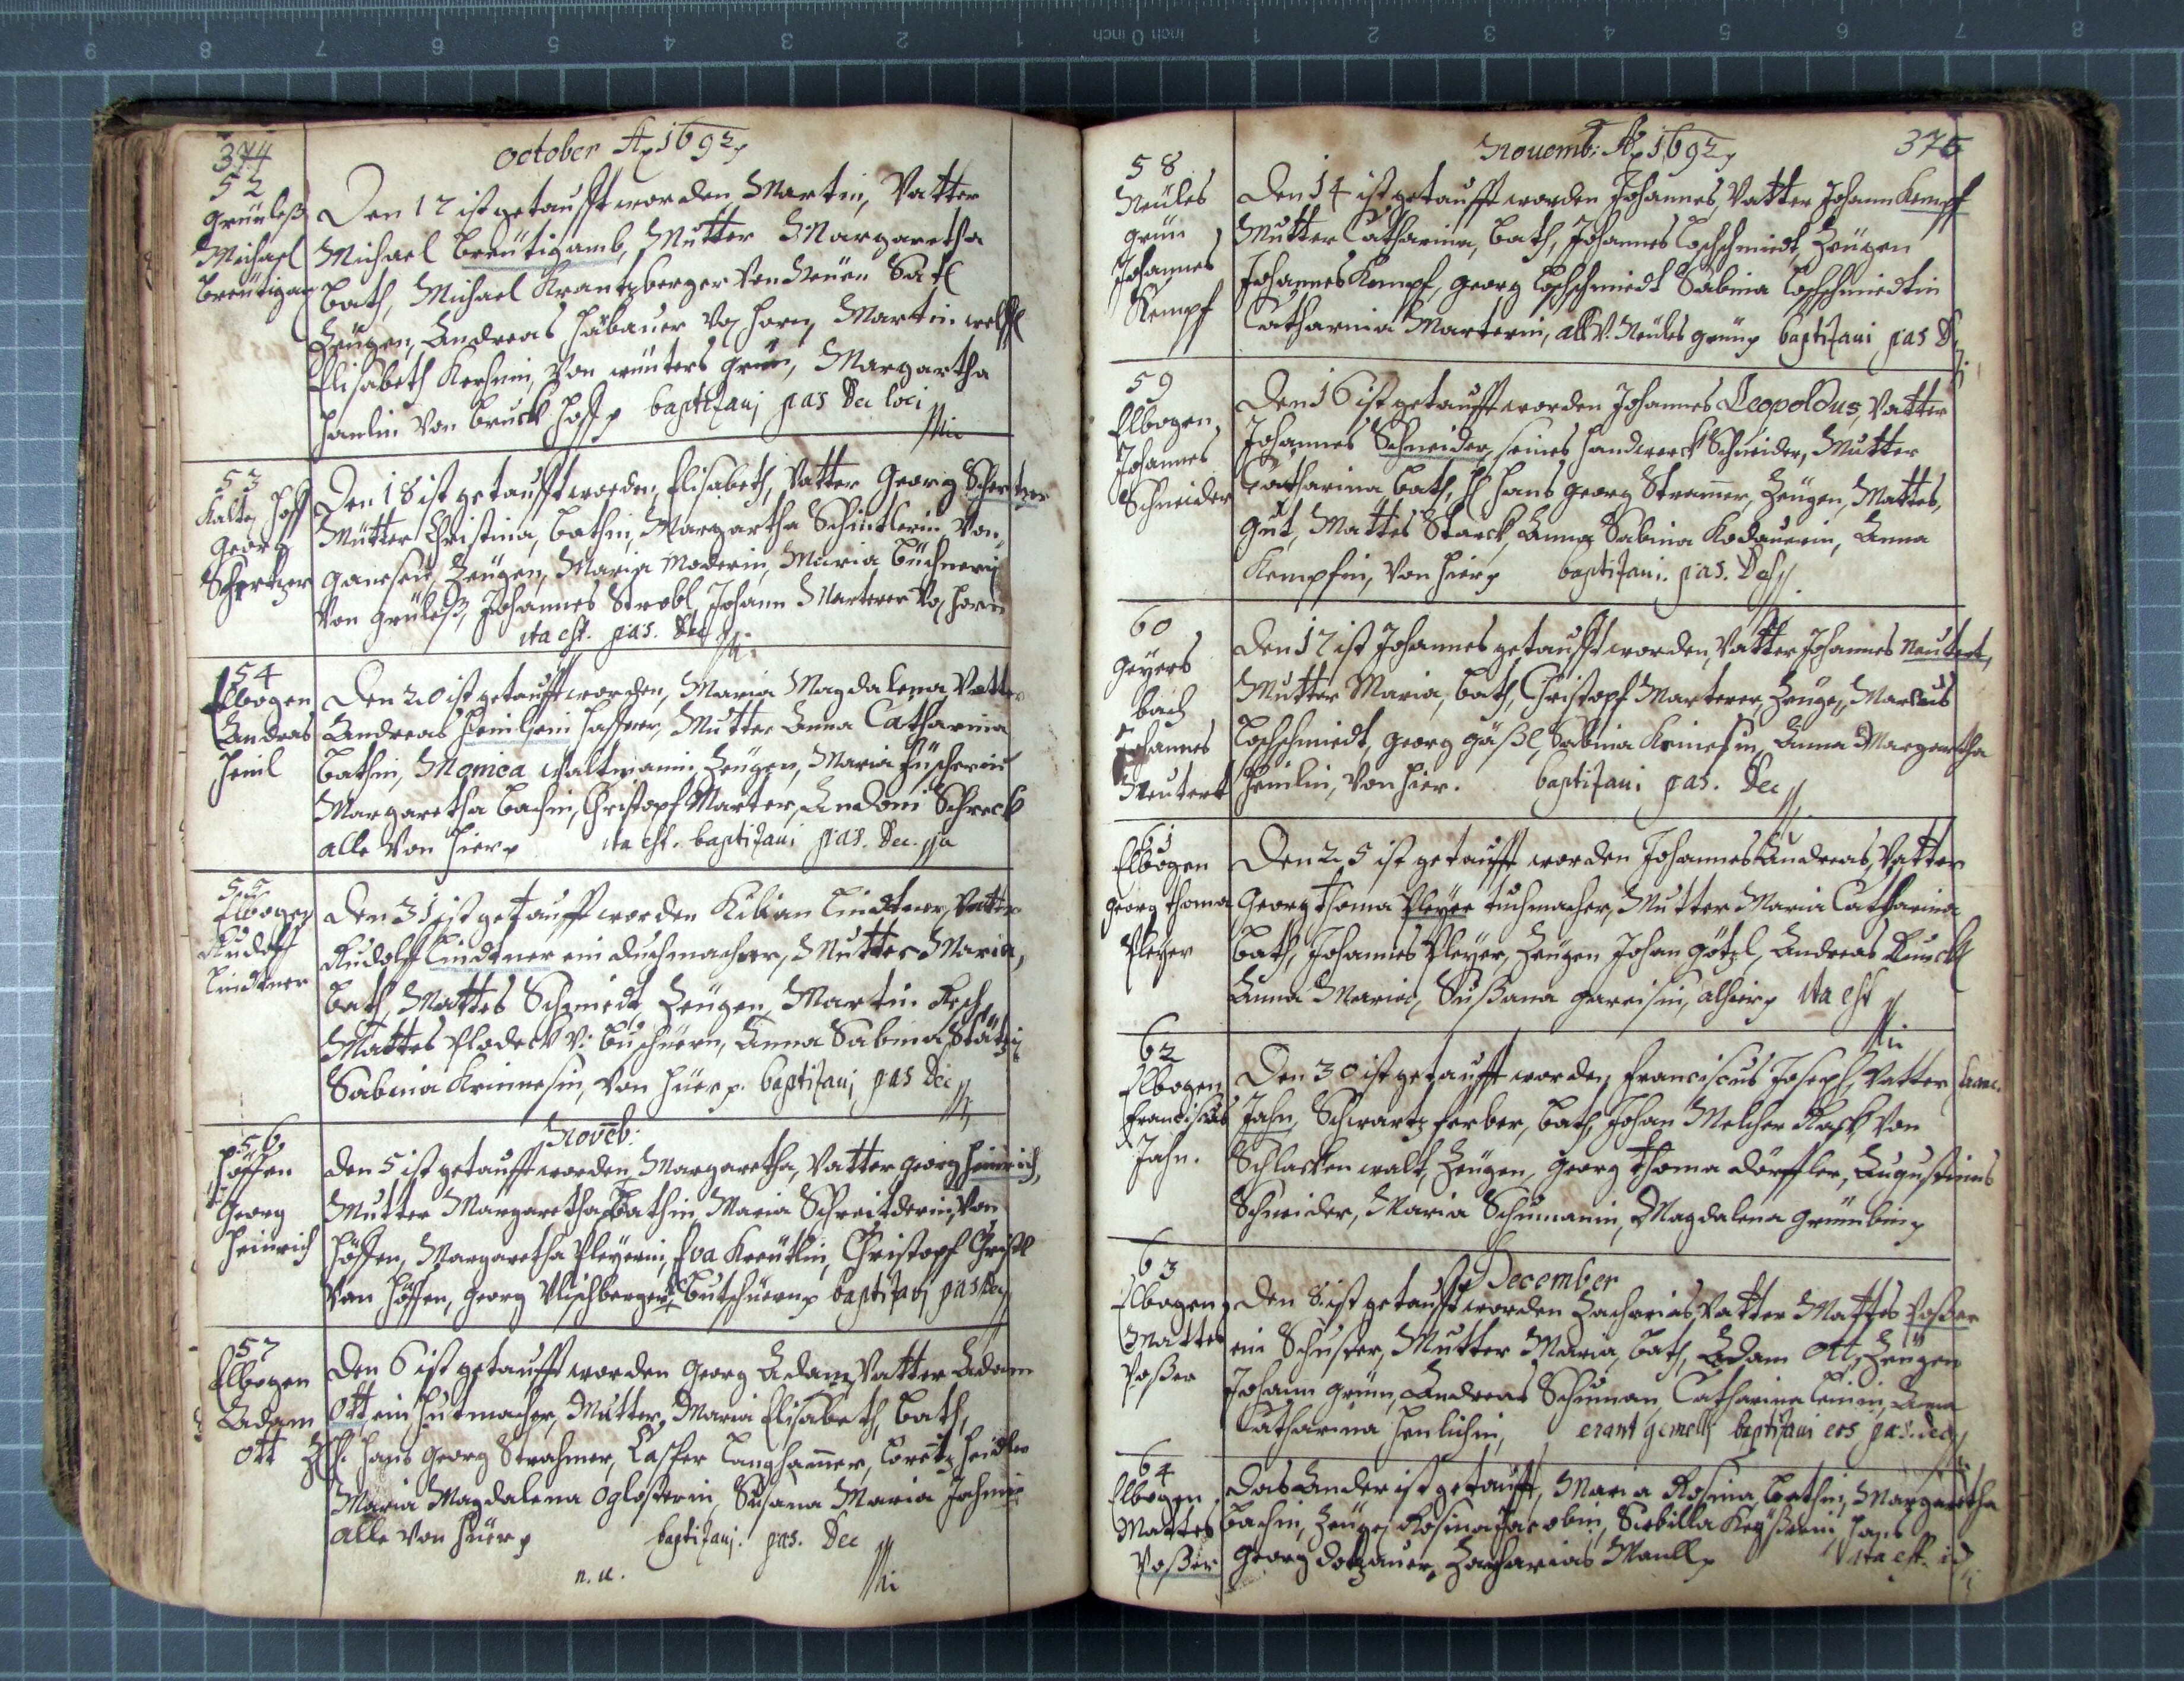 374
October Aõ 1692
52
Grünleß
Michael
Breütigam
Den 17 ist getaufft worden Martin, Vatter
Michael Breütigamb, Mutter Margaretha
Bath, Michael Krantzberger Von Neüen Satl
Zeügen, Andreas Haßbauer Von Horn, Martin
Elisabeth Von grün, Margartha
Von Bruck Hoff baptizavi pas Dec loci
53
Kalten Hoff
Georg
Schertzer
Den 18 ist getaufft worden, Elisabeth, Vatter Georg Schertzer
Mutter Christina, Bathin, Margartha Schintlerin Von
Zeügen, Maria Moderin, Maria Büchnerin
Von Grünleß, Johannes Strobl, Johann Marterer Von Horn
ita est. pas. Dec
54
Elbogen
Andreas
Heinl
Den 20 ist getaufft worden, Maria Magdalena Vatter
Andreas Heinl ein Haffner, Mutter Anna Catharina
Bathin, Monica Waltmanin Zeügen, Maria Fischerin
Margaretha Bachin, Christoph Marter, Andoni Schreck
alle Von hier ita est. baptizavi pas. Dec.
55
Elbogen
Rudolff
Lindtner
Den 31 ist getaufft worden Kilian Lindtner, Vatter
Rudolff Lindtner ein duchmacher, Mutter Maria,
Bath, Mattes Schmiedt, Zeügen, Martin
Mattes Plodeck V: Anna Sabina
Sabina Von hier. baptizavi pas Dec
Noveb:
56
Höffen
Georg
Heinrich
Den 5 ist getaufft worden, Margaretha, Vatter Georg Heinrich,
Mutter Margaretha, Bathin, Maria Von
Höffen, Margaretha Pleyerin, Eva Kreütlin, Christoph Christl
Von Höffen, Georg Vlischberger, baptizavi pas Dec
57
Elbogen
Adam
Ott
Den 6 ist getaufft worden Georg Adam, Vatter Adam
Ott ein Hutmacher, Mutter, Maria Elisabeth, Bath,
H. Hans Georg Strahmer, Casper Langhamer, Lorentz Heidler
Maria Magdalena Susana Maria Jahnin
alle Von hier baptizavi. pas. Dec
n. u.
Novemb: Aõ 1692
375
58
Neüles
grün
Johannes
Kempf
Den 14 ist getaufft worden Johannes, Vatter Johann Kempf
Mutter Catharina, Bath, Johannes Loschmiedt, Zeügen
Johannes Kempf, Georg Loschmiedt Sabina Loschmiedtin
Catharina Marterin, all V. Neüles grün baptizavi pas D
59
Elbogen,
Johannes
Schneider
Den 16 ist getaufft worden Johannes Leopoldus, Vatter
Johannes Schneider, seines Handwerck Schneider, Mutter
Catharina Bath, H Hans Georg Stramer, Zeügen, Mattes,
Gut, Mattes Starck, Anna Sabina Kodauerin, Anna
Kempfin, Von hier baptizavi. pas. Dec
60
Geyers
bach
Johannes
Neutert
Den 17 ist Johannes getaufft worden, Vatter Johannes Neutert,
Mutter Maria, Bath, Christoph Marterer, Zeügen, Marcus
Loschmiedt, Georg Gäßl, Sabina Anna Margaretha
Heinlin, Von hier. baptizavi pas. Dec
61
Elbogen
Georg Thoma
Pleyer
Den 25 ist getaufft worden Johannes Andreas, Vatter
Georg Thoma Pleyer tuchmacher, Mutter Maria Catharina
Bath, Johannes Pleyer, Zeügen Johan Götzl, Andreas
Anna Maria, Sußana Gareisin, alhier ita est
62
Elbogen
Franciscus
Jahn.
Den 30 ist getaufft worden, Franciscus Joseph, Vatter Franc.
Jahn, Schwartz ferber, Bath, Johan Melcher Von
Schlacken walt, Zeügen, Georg Thoma Dörffler, Augustinus
Schneider, Maria Schumanin, Magdalena
December
63
Elbogen
Mattes
Poßer
Den 8 ist getaufft worden Zacharias, Vatter Mattes Poßer
ein Schuster, Mutter Maria, Bath, Adam Ott, Zeügen
Johann Grün, Andreas Schuman, Catharina Anna
Catharina erant gemelli baptizavi eos pas. dec
64
Elbogen
Mattes
Poßer
Das Ander ist getaufft, Maria Rosina, Bathin, Margaretha
Bachin, Zeügen Rosina Jacobin, Siebilla Hans
Georg Dotzauer, Zacharias Maull ita est. id